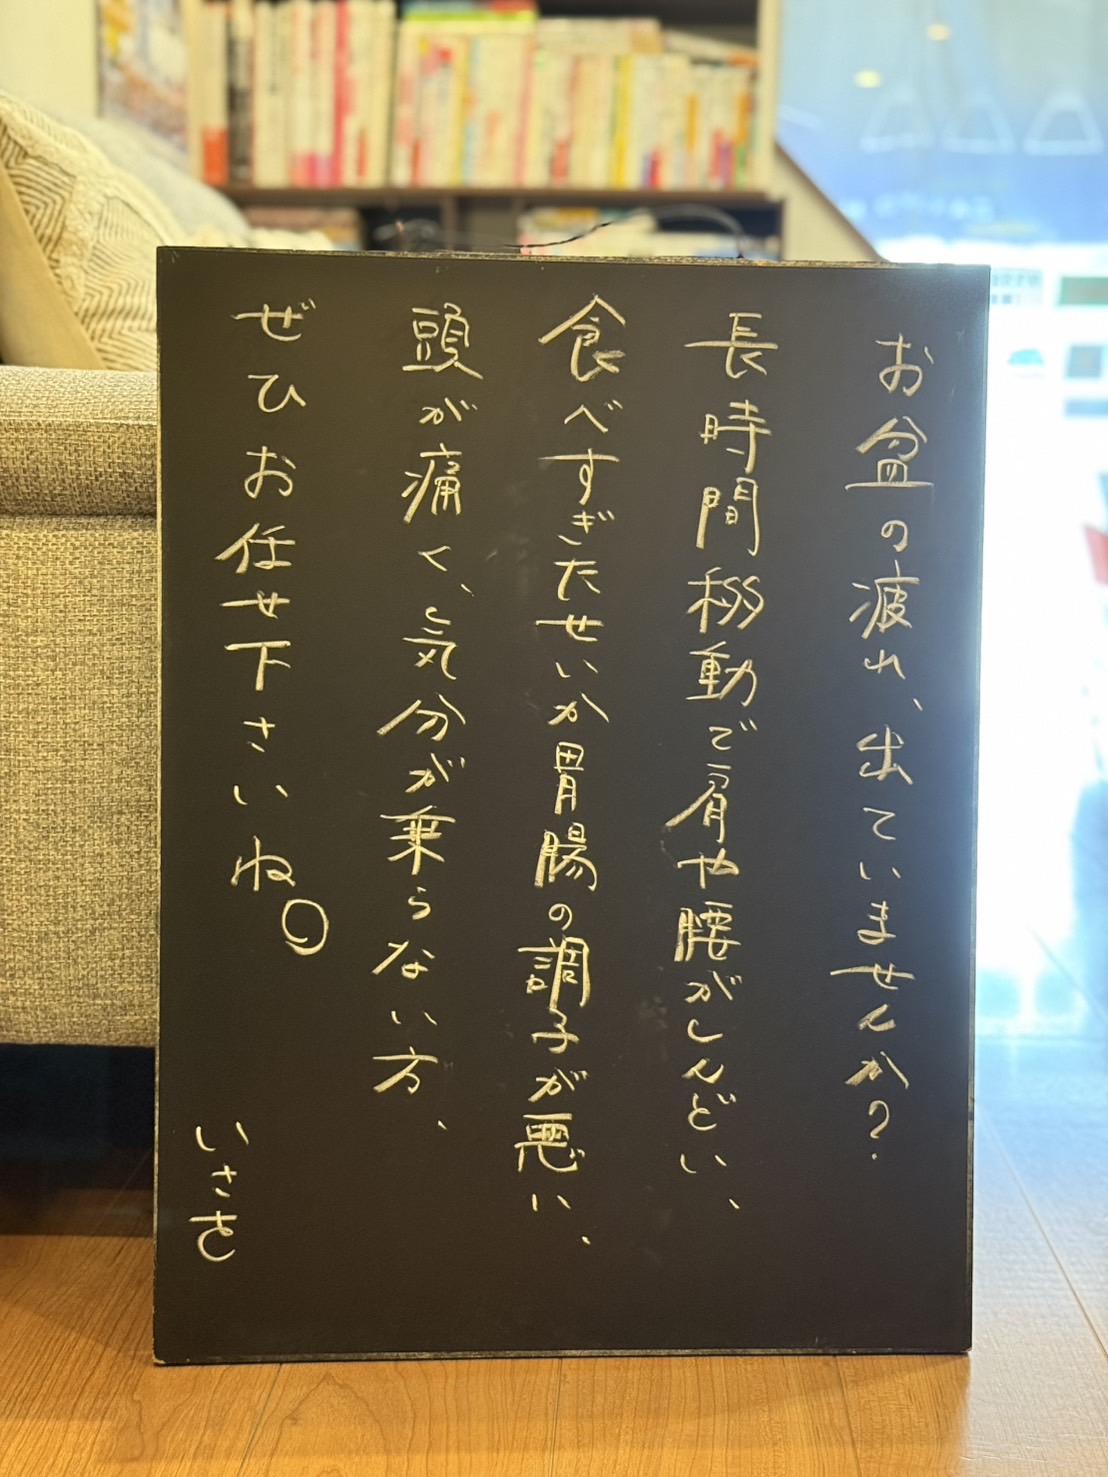 お盆の疲れ、出ていませんか?
長時間移動で肩や腰がしんどい、
食べすぎたせいか胃腸の調子が悪い、
頭が痛く、気分が乗らない方、
ぜひお任せ下さいね。
いさを